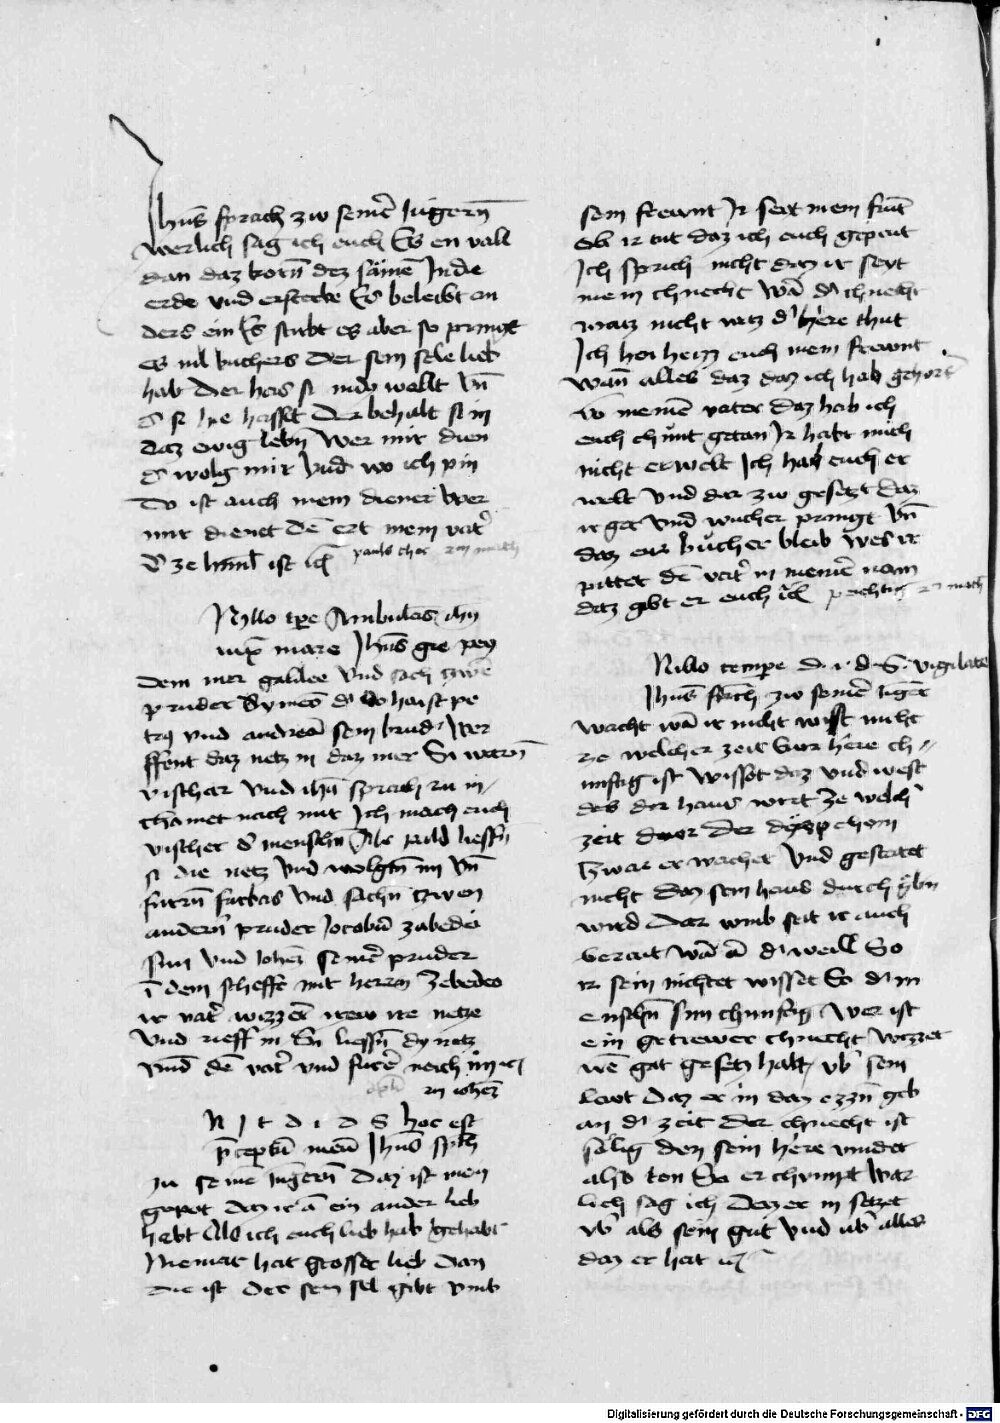 Jhūs sprach zw semē Jūgern̄
werlich sag ich euch Es en vall
dan daz korn̄ dez sāmē In die
erde vnd erstecke Es beleibt an
ders ein Es stirbt es aber so pringt
es vil vuchers Der sein sele lieb
hab Der
Der behalt si in
daz ewig lebn̄ Wer mir dien
d̄ wolg mir Vnd wo ich pin
Do ist auch mein diener Wer
mir dienet dē ert mein vat̓
d̓ ze himl̄ ist
Jn Illo tp̄e Ambulās ihūs
iuxͣ mare Jhūs gie pey
dem mer galilee Vnd sach zwen̄
pruder Symon d̓ do haist pe
trus vnd andreā sein brud̓ Wer
ffent daz netz in daz mer Si warn̄
vischer Vnd ihūs sprach zu in
chāmet nach mir Ich mach euch
vischer d̓ menschn̄ Als pald liessn̄
si die netz Vnd volgtn̄ im Vn̄
fūrn̄ furbas Vnd sachn zwen
andern̄ pruder Jacobū zabedei
sun vnd Johēs semē pruder
ī dem scheffe mit herrn Zebedeo
ir vat̓ irew netze
Vnd rieff in Si liessn̄ dy netz
vnd dē vat̓ vnd nach
N I t d i d S hoc est
p̄ceptū meū Jhūs spch̄
zu semē Jūgern̄ Daz ist mein
gepot daz ir ā ein ander lieb
habt Als ich euch lieb hab gehabt
Niemat hat grosser lieb Dan
die ist Der sein sel gibt vmb
sein frewnt Ir seit mein frūt
Ob ir tut daz ich euch gepeut
Ich sprich nicht daz ir seyt
mein chnecht Wā d̓ chnecht
waiz nicht waz d̓ here thut
Ich hei heizz euch mein frewnt
wan̄ alles daz daz ich hab gehort
vō meinē vater daz hab ich
euch chūnt getan Ir habt mich
nicht erwelt Ich hab euch er
welt Vnd dar zw gesetzt daz
ir get Vnd wucher pringt Vn̄
daz eur wucher bleib Wes ir
pittet dē vat̓ in meinē nam
daz gibt er euch
N Illo tempe d. i. d. S. vigilate
Jhūs sprach zw semē Jūger
wacht wā ir nicht wisst nicht
ze welcher zeit ewr here ch
unftig ist Wisset daz vnd west
des der haus wirt ze welch̓
zeit der
zwar er wachet Vnd gestatet
nicht daz sein haus durch
wird Dar vmb seit ir auch
berait wā ā d̓ weill So
ir sein nichtet wisset So d̓ m
enschn̄ sun chunftig Wer ist
ein getrewer chnecht
wē gat gesetz hatt vb̓ sein
lewt daz er in daz ezzn̄ geb
an d̓ zeit Der chnecht ist
sālig den sein here vindet
also ton So er chumpt War
lich sag ich Daz er in setzet
vb̓ als sein gut Vnd vb̓ alles
daz er hat
Digitalisierung gefördert durch die Deutsche Forschungsgemeinschaft - DFG